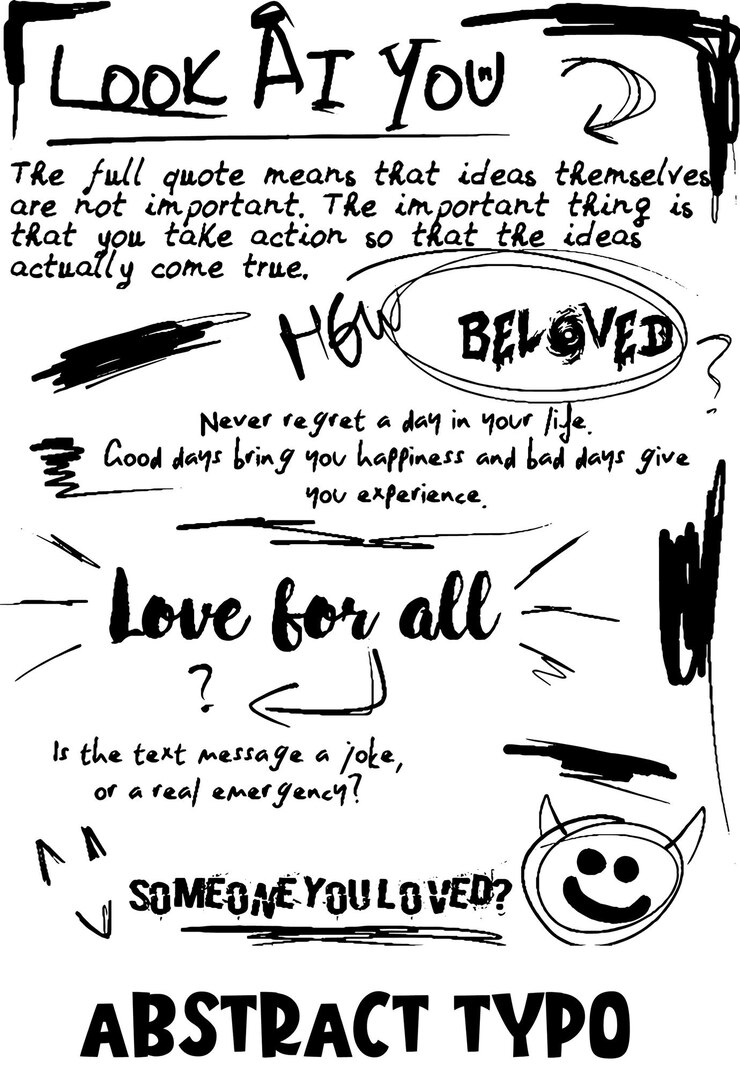 Look At You
The full quote means that ideas themselves
are not important. The important thing is
that you take action so that the ideas
actually come true.
How BELOVED
?
Never regret a day in your life.
Good days bring you happiness and bad days give
you experience.
Love for all
?
Is the text message a joke,
or a real emergency?
SOMEONE YOU LOVED?
ABSTRACT TYPO